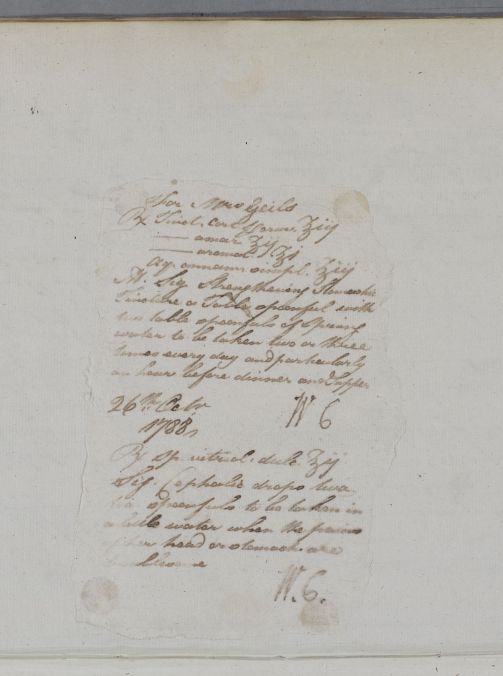 For Mrs Geils
℞ Tinct. Cort. Peruv. ʒiij
—— amar. ʒij
—— aromat. ʒi
Aq. cinnam. simpl. ʒiij
M. Sig. Strengthening Stomachic
Tincture a Table spoonful with
two table spoonfuls of Spring
water to be taken two or three
times every day and particularly
an hour before dinner and Supper
26th Octr W C
1788
℞ Sp. vitriol. dulc. ʒij
Sig. Cephalic drops two
tea spoonfuls to be taken in
a little water when the pains
of her head or stomach are
troublesome
W. C.